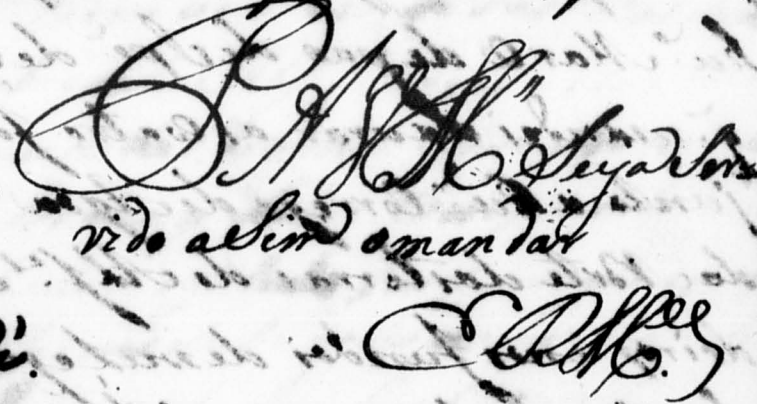 P. A V. M.ce Seja Ser-
vido assim o mandar
E R M.ce